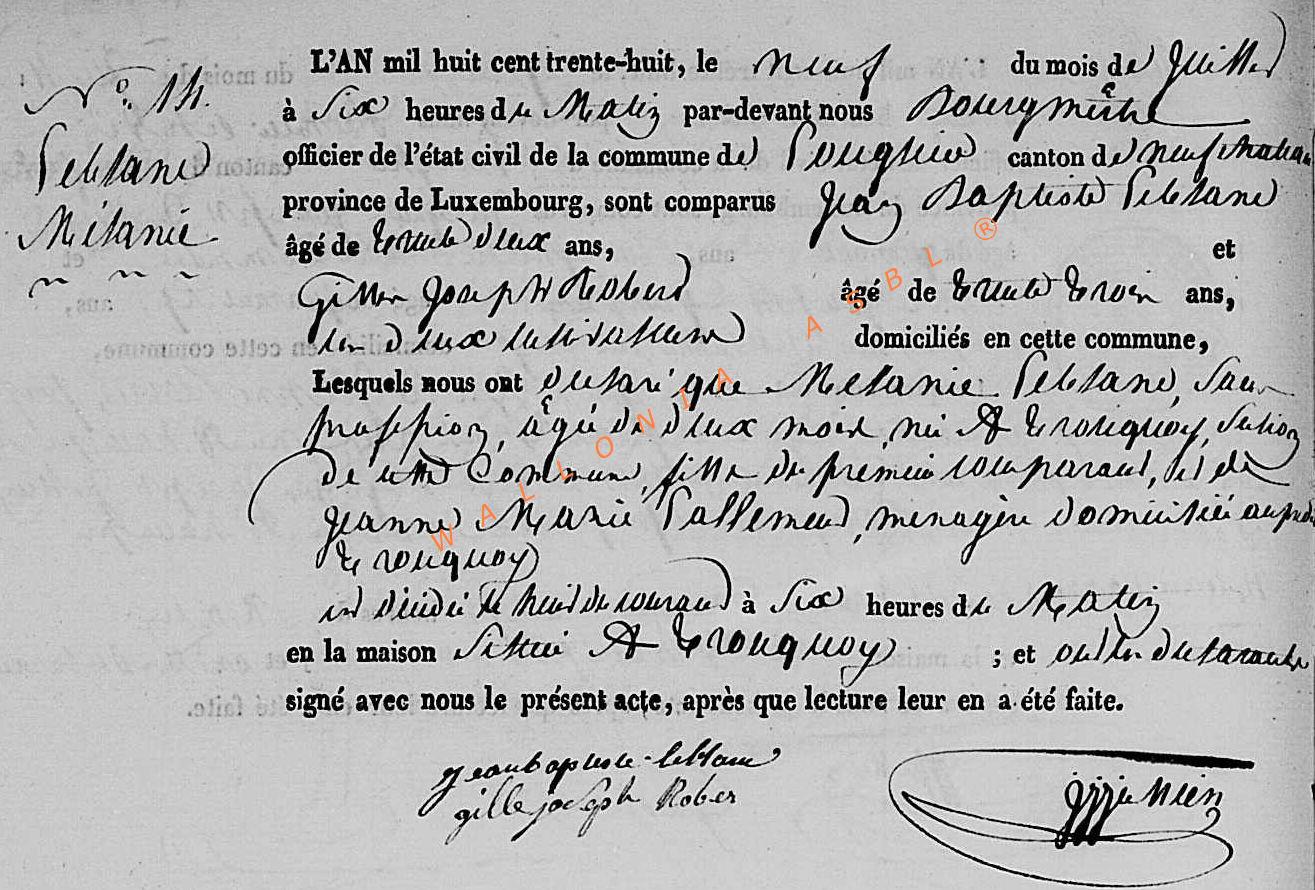 L'AN mil huit cent trente-huit, le neuf du mois de Juillet
N.° 14.
à Six heures du Matin par-devant nous Bourgmestre
officier de l'état civil de la commune de Longlier canton de neufchateau
Leblanc
province de Luxembourg, sont comparus Jean Baptiste Leblanc
Mélanie
âgé de trente deux ans, et
Gilles Joseph Robert âgé de trente trois ans,
les deux cultivateurs domiciliés en cette commune,
Lesquels nous ont declaré que Mélanie Leblanc, sans
profession, agée de deux mois, née A tronquoy, Section
de cette Commune, fille du premier comparant, et de
Jeanne Marie, menagère domiciliée
tronquoy
est décédée le huit du courant à Six heures du Matin
en la maison Située A tronquoy ; et ont les declarants
signé avec nous le présent acte, après que lecture leur en a été faite.
jean baptiste leblanc
gille joseph Rober
WALLONIA ASBL ®